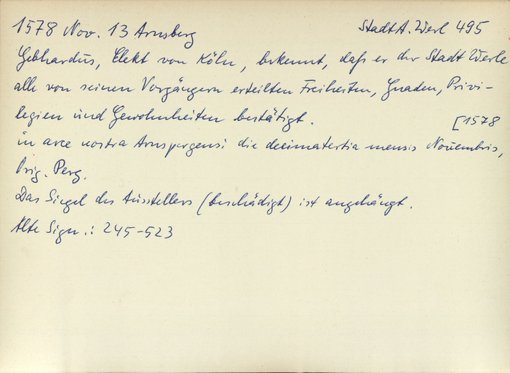 1578 Nov. 13 Arnsberg StadtA. Werl 495
Gebhardus, Elekt von Köln, bekennt, daß er der Stadt Werle
alle von seinen Vorgängern erteilten Freiheiten, Gnaden, Privi-
legien und Gewohnheiten bestätigt. [1578
in arce nostra Arnspergensi die decimatertia mensis Nouembris,
Orig. Perg.
Das Siegel des Ausstellers (beschädigt) ist angehängt.
Alte Sign.: 245-523